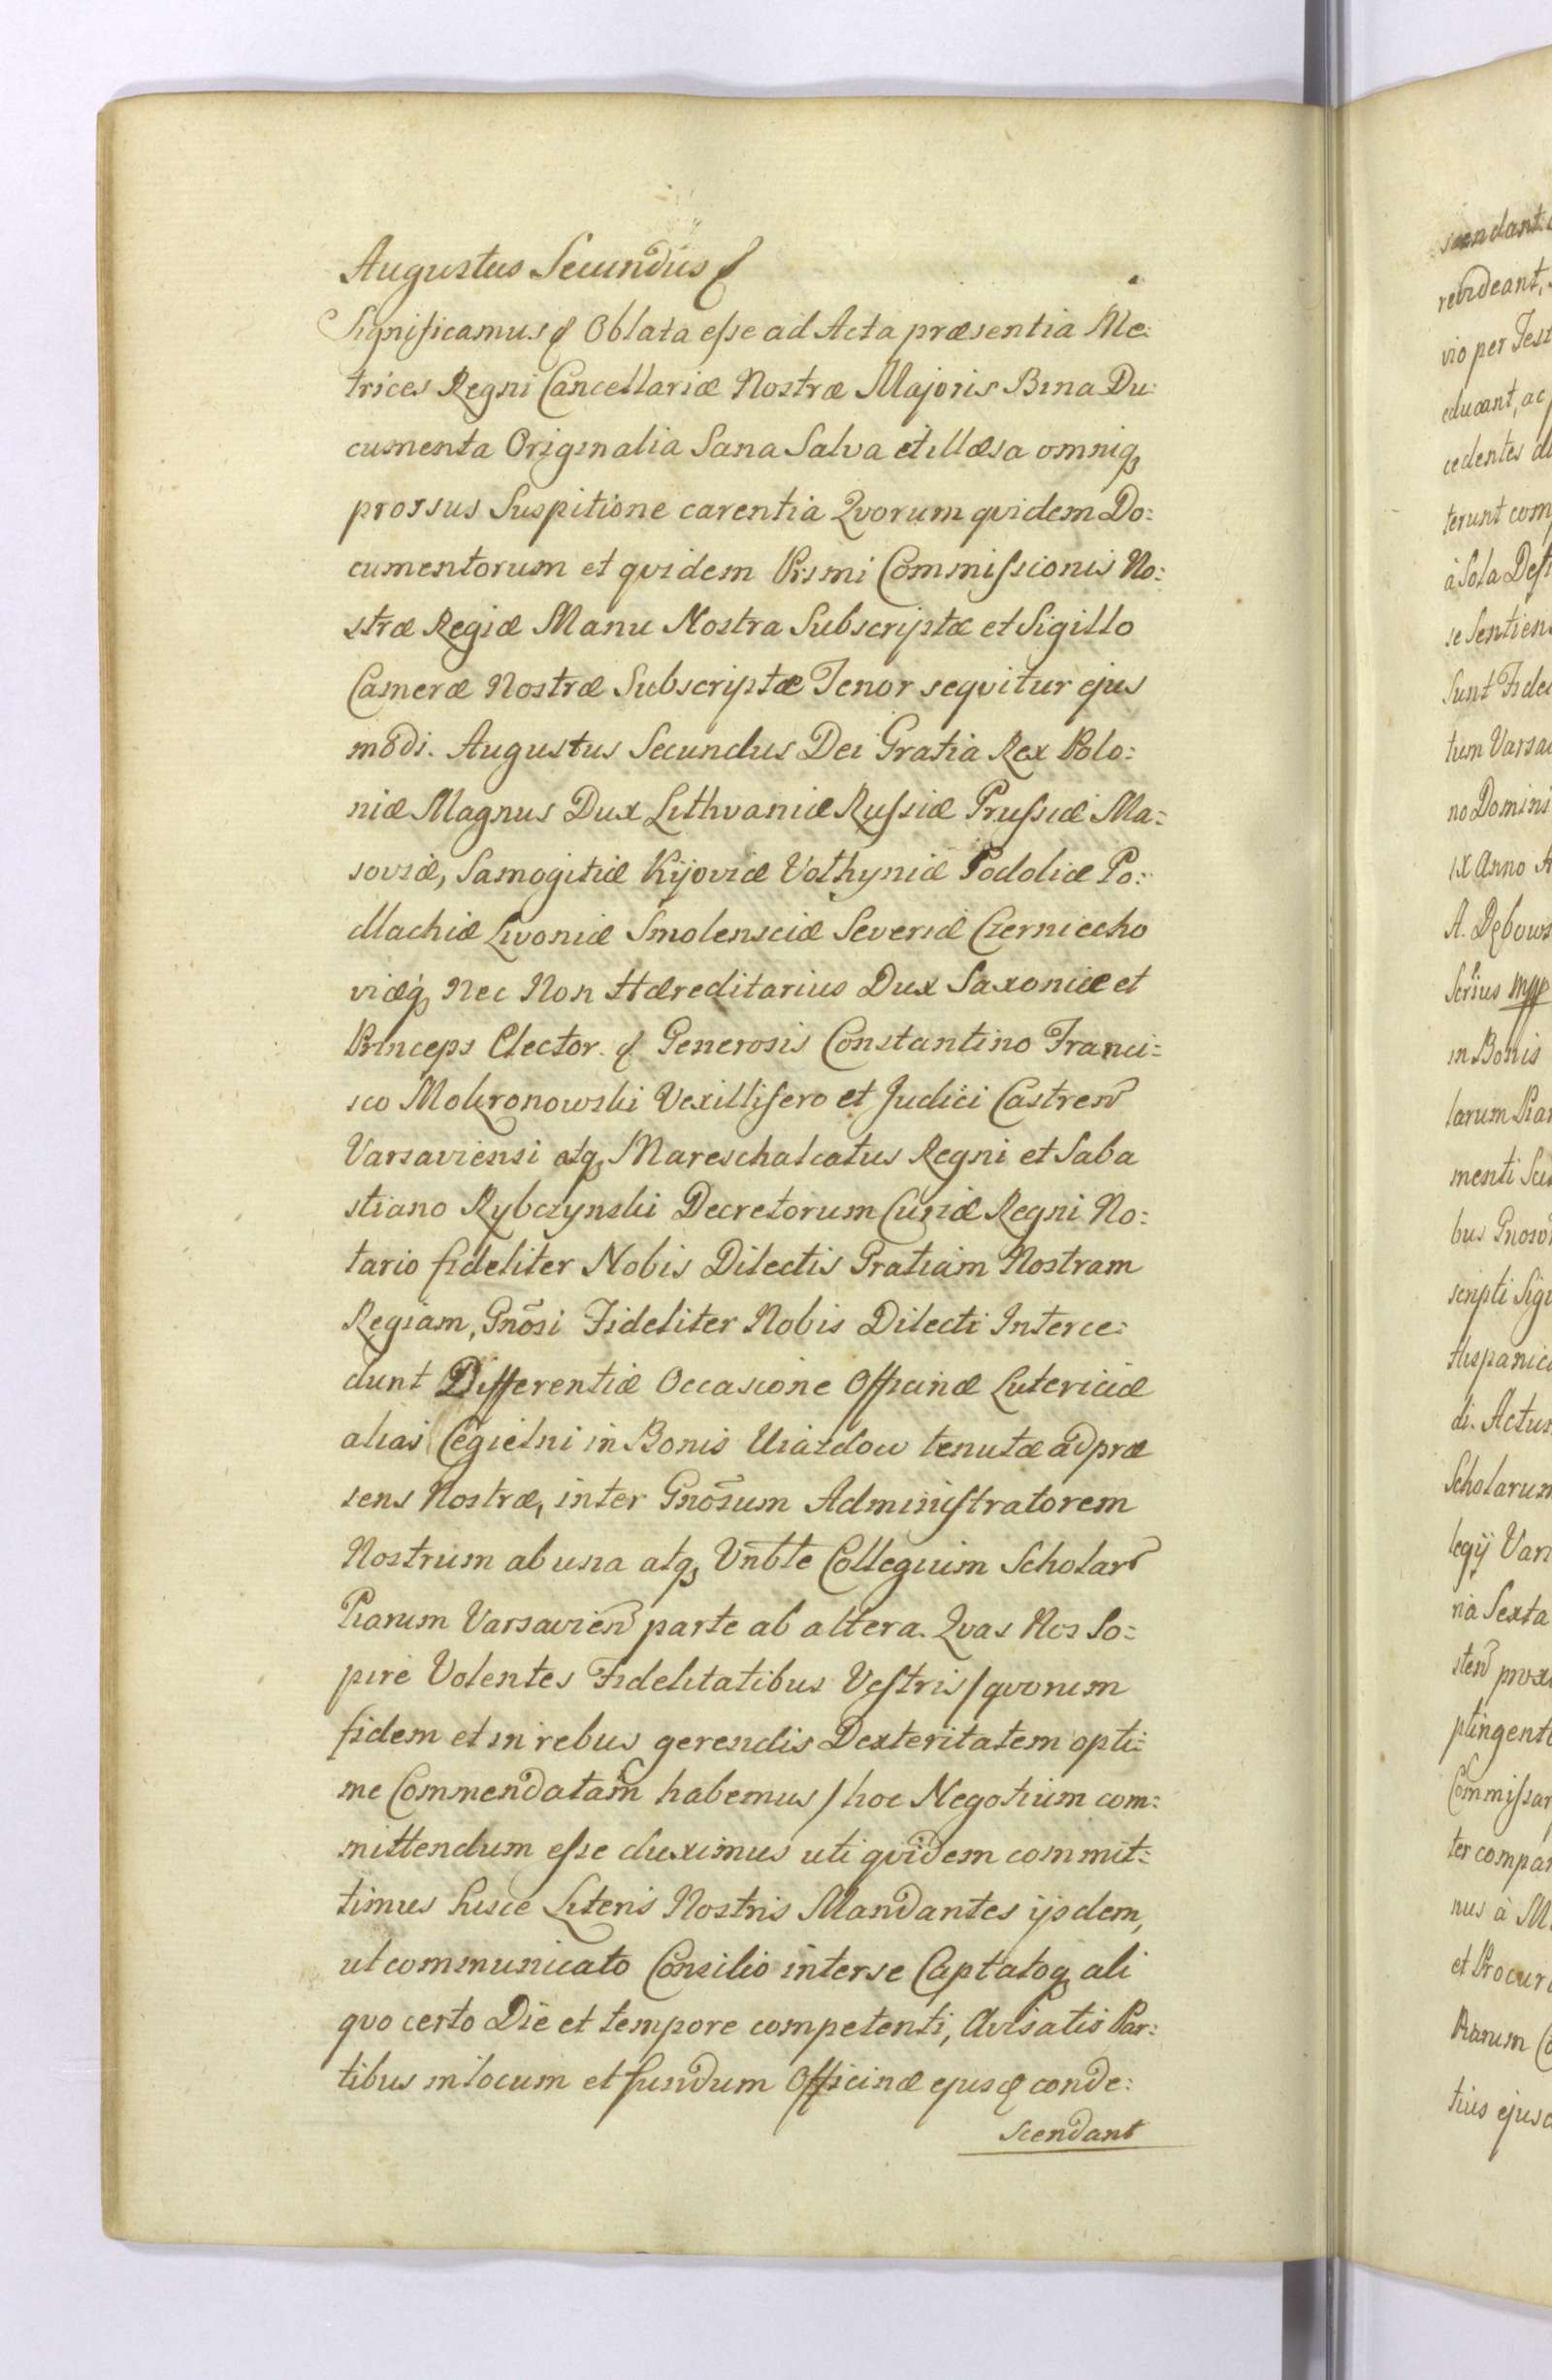 Augustus Secundus &
Significamus & Oblata esse ad Acta præsentia Me:
trices Regni Cancellariæ Nostræ Majoris Bina Du:
cumenta Originalia Sana Salva et illæsa omniq
prorsus Suspitione carentia Qvorum qvidem Do:
cumentorum et qvidem Primi Commissionis No:
stræ Regiæ Manu Nostra Subscriptæ et Sigillo
Cameræ Nostræ Subscriptæ Tenor seqvitur ejus
modi. Augustus Secundus Dei Gratia Rex Polo:
niæ Magnus Dux Lithvaniæ Russiæ Prussiæ Ma:
soviæ, Samogitiæ Kijoviæ Volhyniæ Podoliæ Po:
dlachiæ Livoniæ Smolensciæ Severiæ Czerniecho
viæq Nec Non Hæreditarius Dux Saxoniæ et
Princeps Elector. & Generosis Constantino Franci:
sco Mokronowski Vexillifero et Judici Castren
Varsaviensi atq Mareschalcatus Regni et Saba
stiano Rybczynski Decretorum Curiæ Regni No:
tario fideliter Nobis Dilectis Gratiam Nostram
Regiam, Gnõsi Fideliter Nobis Dilecti Interce:
dunt Differentiæ Occasione Officinæ Lutericiæ
alias Cegielni in Bonis Uiazdow tenutæ ad præ
sens Nostræ, inter Gnõsum Administratorem
Nostrum ab una atq Vnble Collegium Scholar
Piarum Varsavien parte ab altera. Qvas Nos So:
pire Volentes Fidelitatibus Vestris / qvorum
fidem et in rebus gerendis Dexteritatem opti:
me Commendatam habemus / hoc Negotium com:
mittendum esse duximus uti qvidem commit:
timus hisce Literis Nostris Mandantes ijsdem,
ut communicato Consilio inter se Captatoq ali
qvo certo Die et tempore competenti, Avisatis Par:
tibus in locum et fundum Officinæ ejusd conde:
scendant
scendant
revideant,
vio per Test
educant, ac
cedentes
terunt com
à Sola
se Sentien
Sunt Fide
tum Varsa
no Domini
ix Anno
A. Dębows
Scrius mpp
in Bonis
larum Piar
menti
bus Gnoso
scripti Sig
Hispanic
di. Actu
Scholarum
legij Var
na Sexta
sten prox
ptingent
Commissar
ter compar
nus à M
et Procur
Piarum
tius ejus